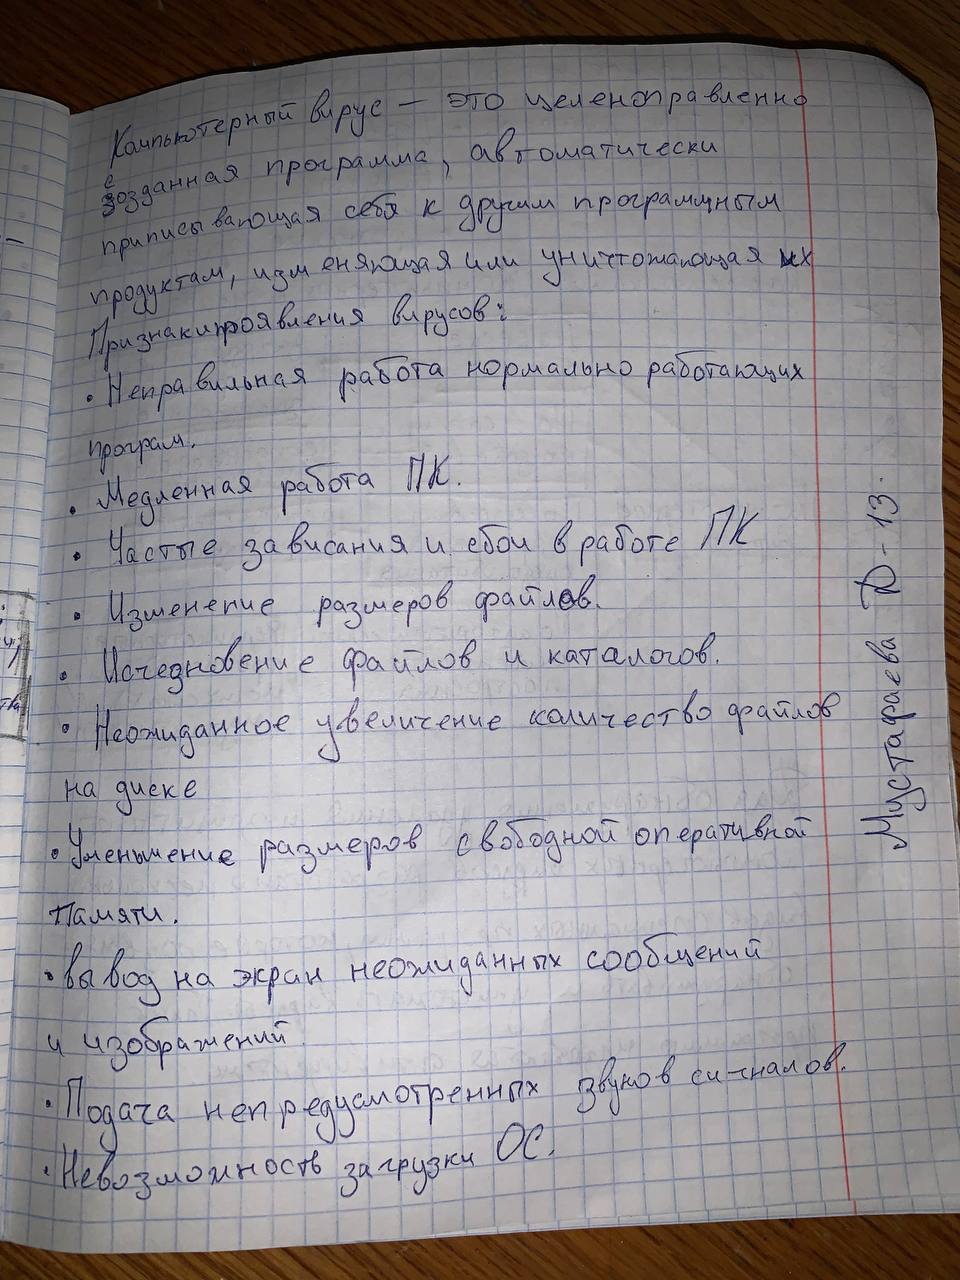 Компьютерный вирус — это целеноправленно
созданная программа, автоматически
приписывающая себя к другим программным
продуктам, изменяющая или уничтожающая их
Признаки проявления вирусов:
• Неправильная работа нормально работающих
програм.
• Медленная работа ПК.
• Частые зависания и сбои в работе ПК
• Изменение размеров файлов.
• Исчезновение файлов и каталогов.
• Неожиданное увеличение количество файлов
на диске
• Уменьшение размеров свободной оперативной
памяти.
• вывод на экран неожиданных сообщений
и изображений.
• Подача непредусмотренных звуков сигналов.
• Невозможность загрузки ОС.
Мустафаева Д-13.